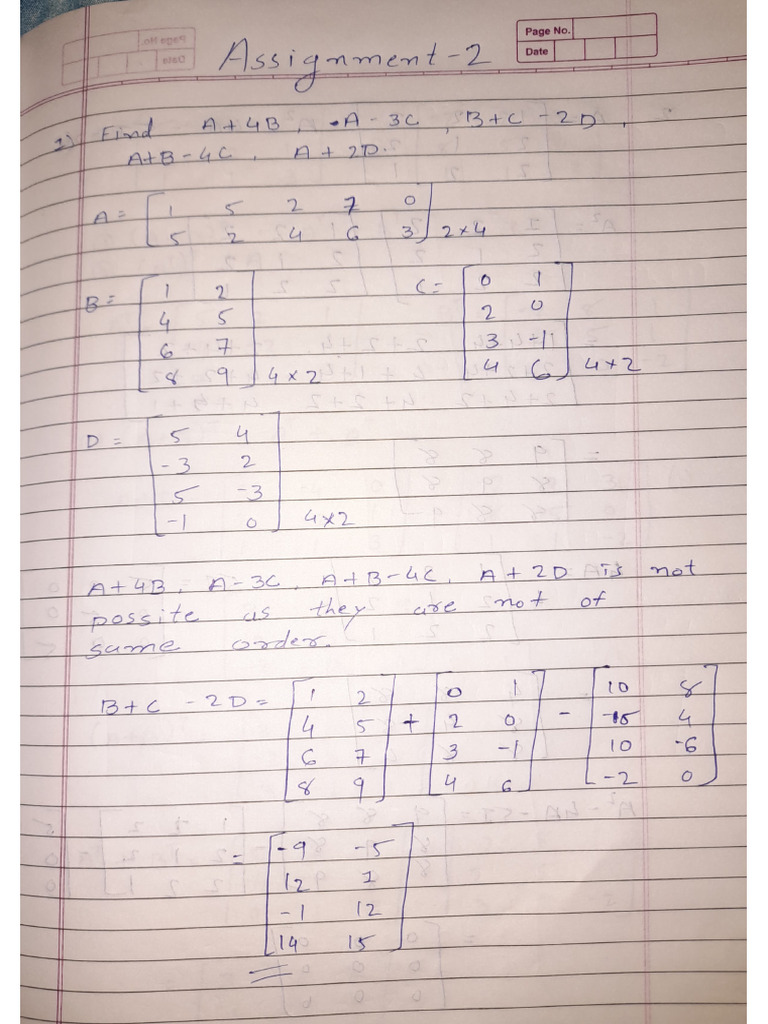 Page No.
Date
Assignment-2
1) Find A+4B, A-3C, B+C-2D,
A+B-4C, A+2D.
A= [ 1 5 2 7 0
5 2 4 6 3 ] 2×4
B= [ 1 2 C= [ 0 1
4 5 2 0
6 7 3 -1
8 9 ] 4×2 4 6 ] 4×2
D= [ 5 4
-3 2
5 -3
-1 0 ] 4×2
A+4B, A-3C, A+B-4C, A+2D is not
possite as they are not of
same order.
B+C-2D= [ 1 2 ] [ 0 1 ] [ 10 8 ]
4 5 + 2 0 - 4
6 7 3 -1 10 -6
8 9 4 6 -2 0
= [ -9 -5
12 1
-1 12
14 15 ]